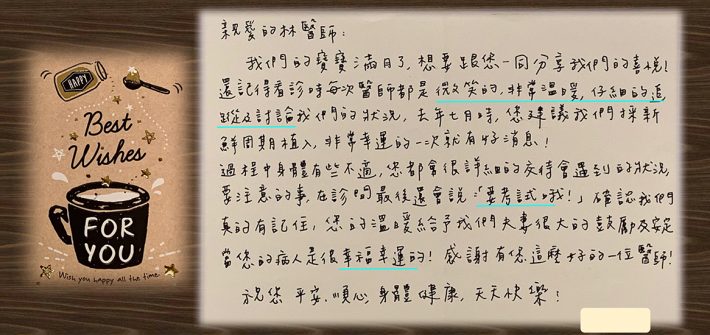 HAPPY
Best
Wishes
FOR
YOU
Wish you happy all the time
親愛的林醫師:
我們的寶寶滿月了,想要跟您一同分享我們的喜悅!
還記得看診時每次醫師都是微笑的,非常溫暖,仔細的追
蹤及討論我們的狀況,去年七月時,您建議我們採新
鮮周期植入,非常幸運的一次就有好消息!
過程中身體有些不適,您都會很詳細的交待會遇到的狀況
要注意的事,在診間最後還會說:「要考試哦!」確認我們
真的有記住,您的溫暖給予我們夫妻很大的鼓勵及安定
當您的病人是很幸福幸運的!感謝有您這麼好的一位醫師!
祝您 平安、順心,身體健康,天天快樂!